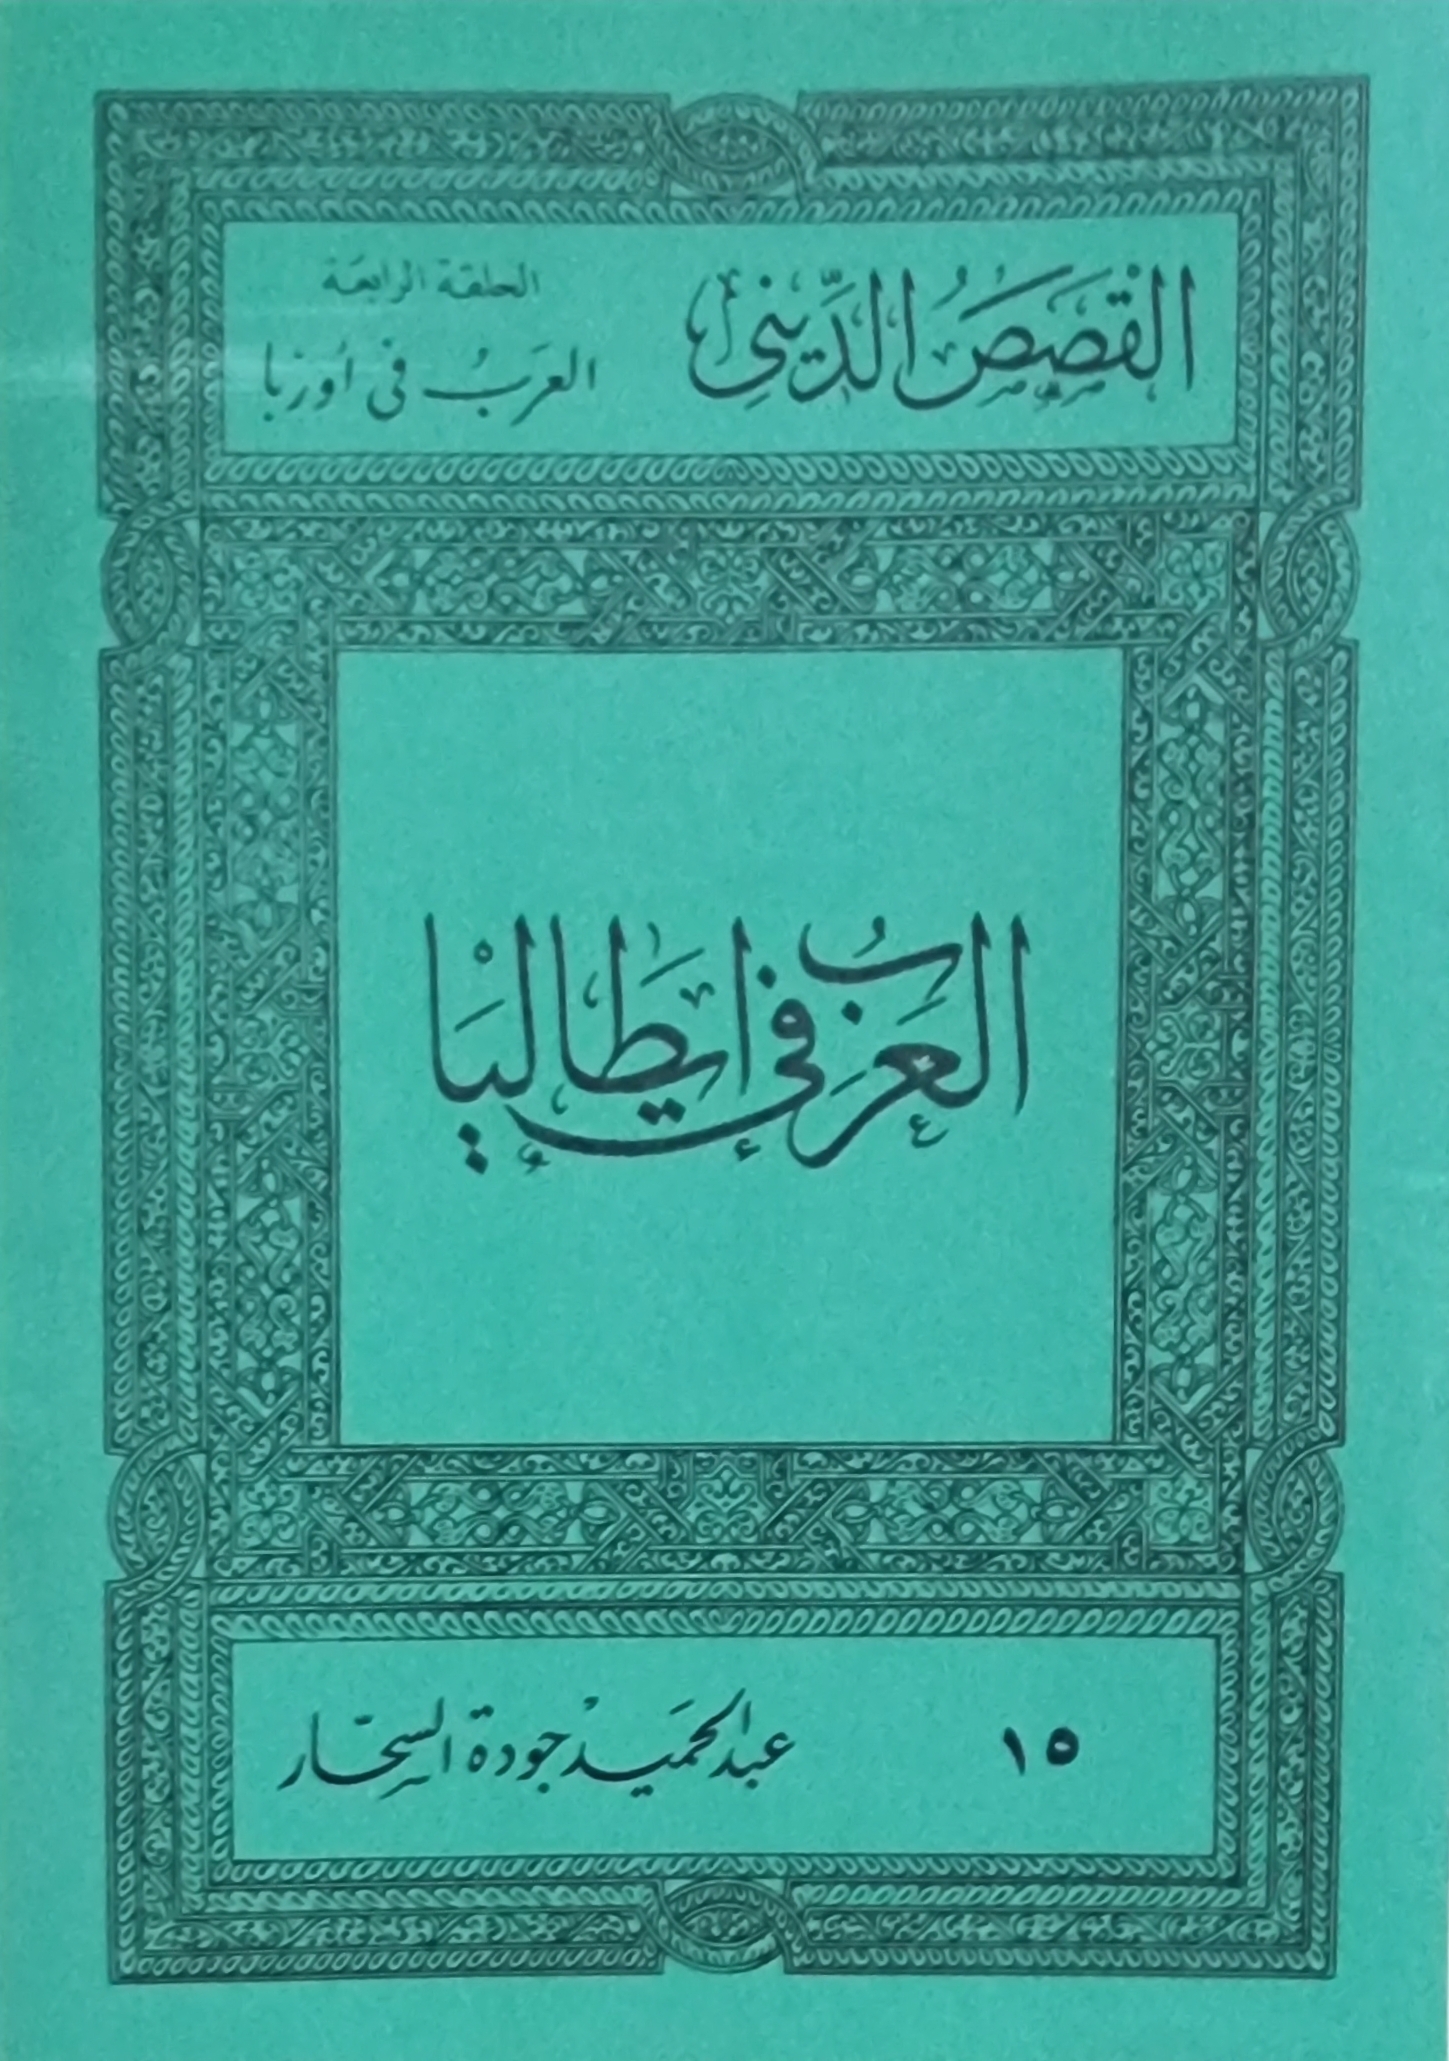 القصص الديني
الحلقة الرابعة
العرب في أوربا
العرب في إيطاليا
١٥
عبد الحميد جودة السحار